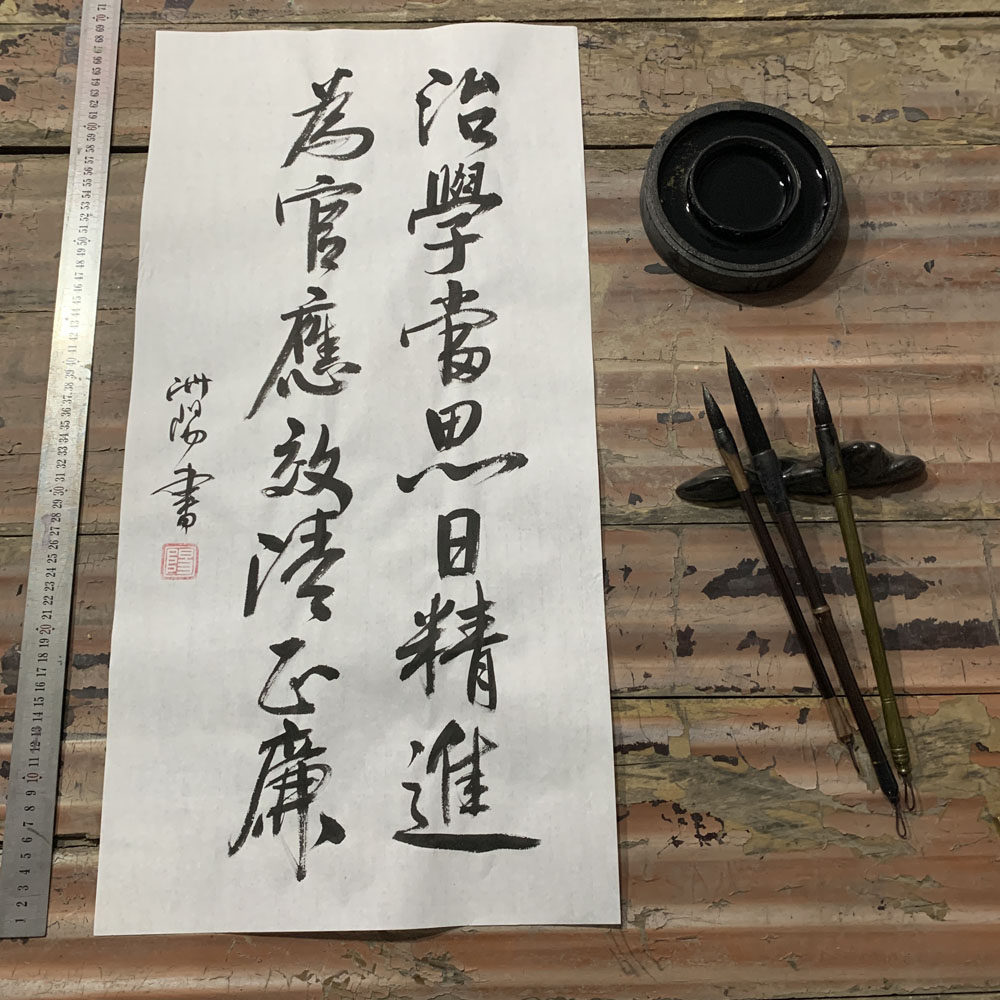 治學當思日精進
為官應效清正廉
洲陽書
陽